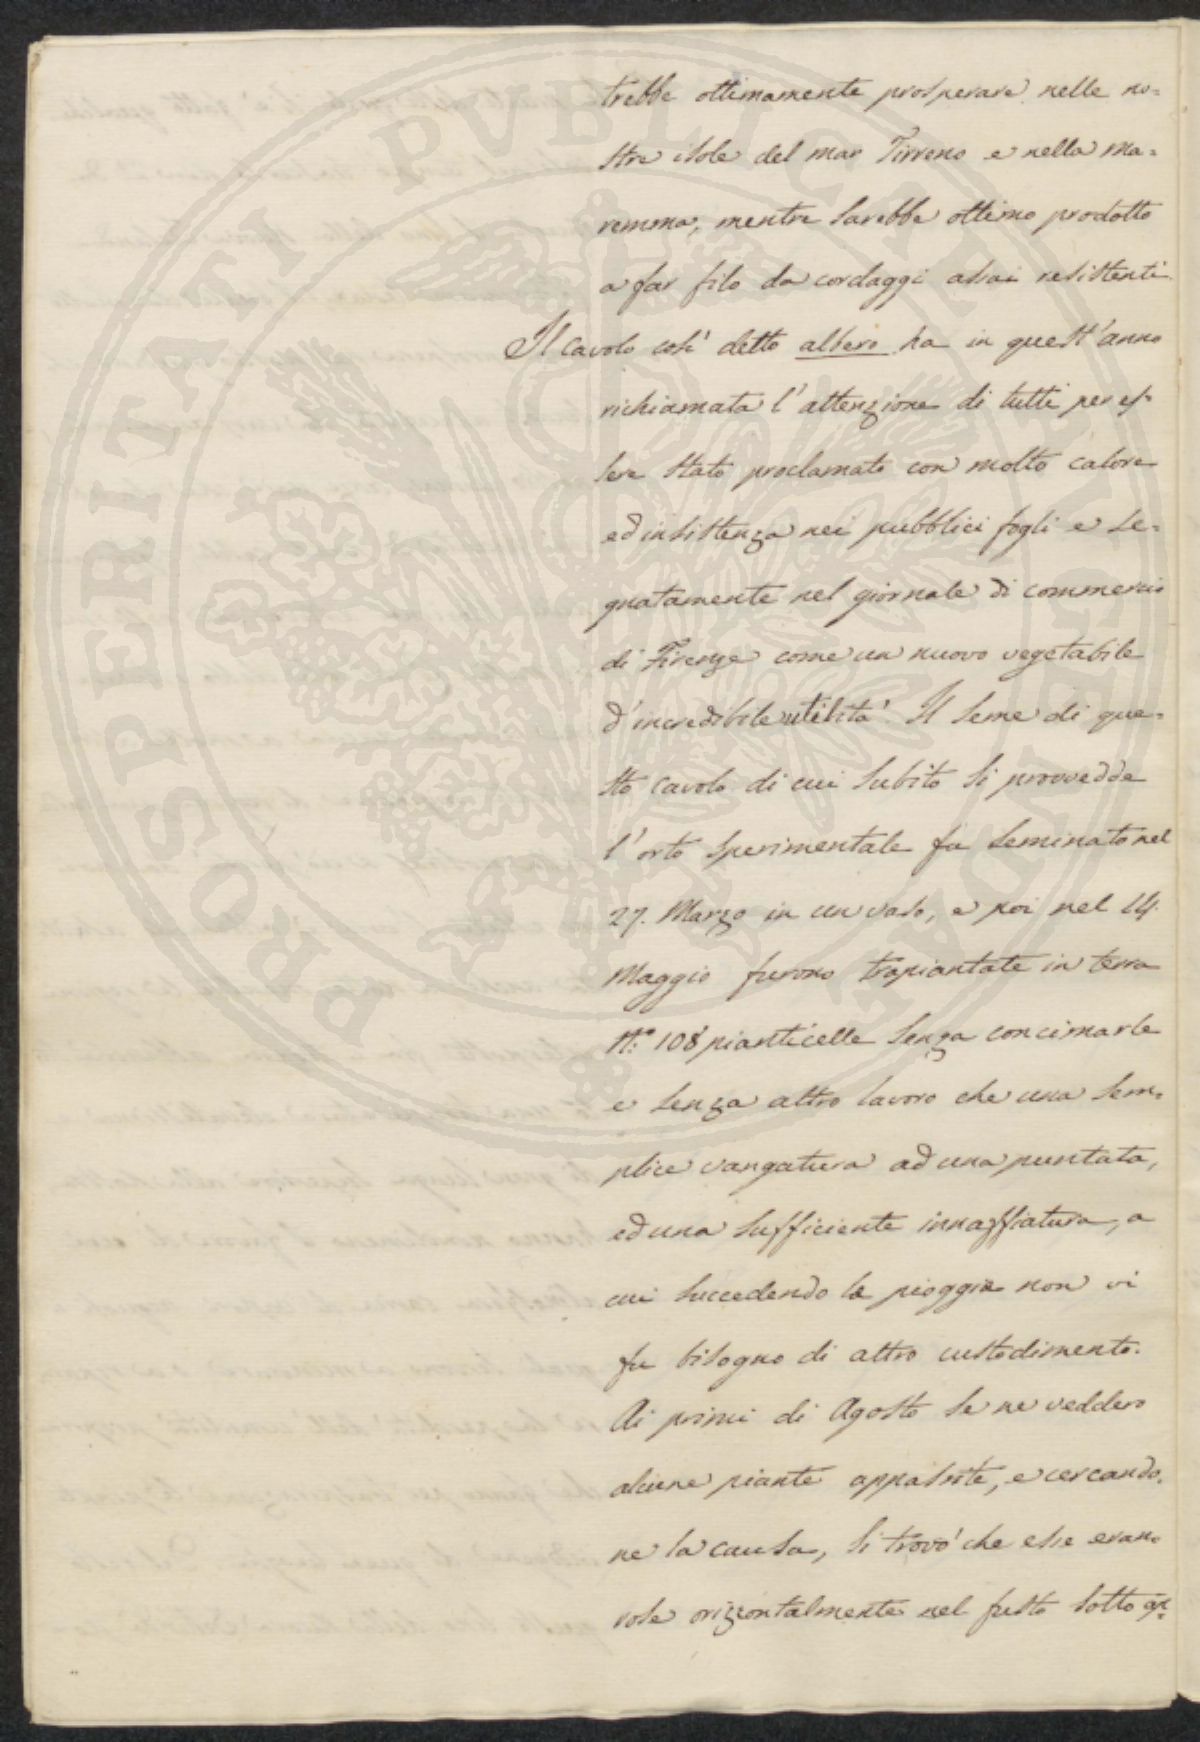 trebbe ottimamente prosperare nelle no=
stre isole del mar Tirreno e nella ma=
remma, mentre sarebbe ottimo prodotto
a far filo da cordaggi assai resistenti.
Il cavolo così detto albero ha in quest'anno
richiamata l'attenzione di tutti per es=
sere stato proclamato con molto calore
ed insistenza nei pubblici fogli e se=
gnatamente nel giornale di commercio
di Firenze come un nuovo vegetabile
d'incredibile utilità. Il seme di que=
sto cavolo di cui subito si provvedde
l'orto sperimentale fu seminato nel
27. Marzo in un vaso, e poi nel 14.
Maggio furono trapiantate in terra
N.° 108 pianticelle senza concimarle
e senza altro lavoro che una sem=
plice vangatura ad una puntata,
ed una sufficiente innaffiatura, a
cui succedendo la pioggia non vi
fu bisogno di altro custodimento.
Ai primi di Agosto se ne veddero
alcune piante appassite, e cercando=
ne la causa, si trovò che esse erano
rose orizzontalmente nel fusto sotto
PROSPERITATI PVBLICAE AVGENDAE